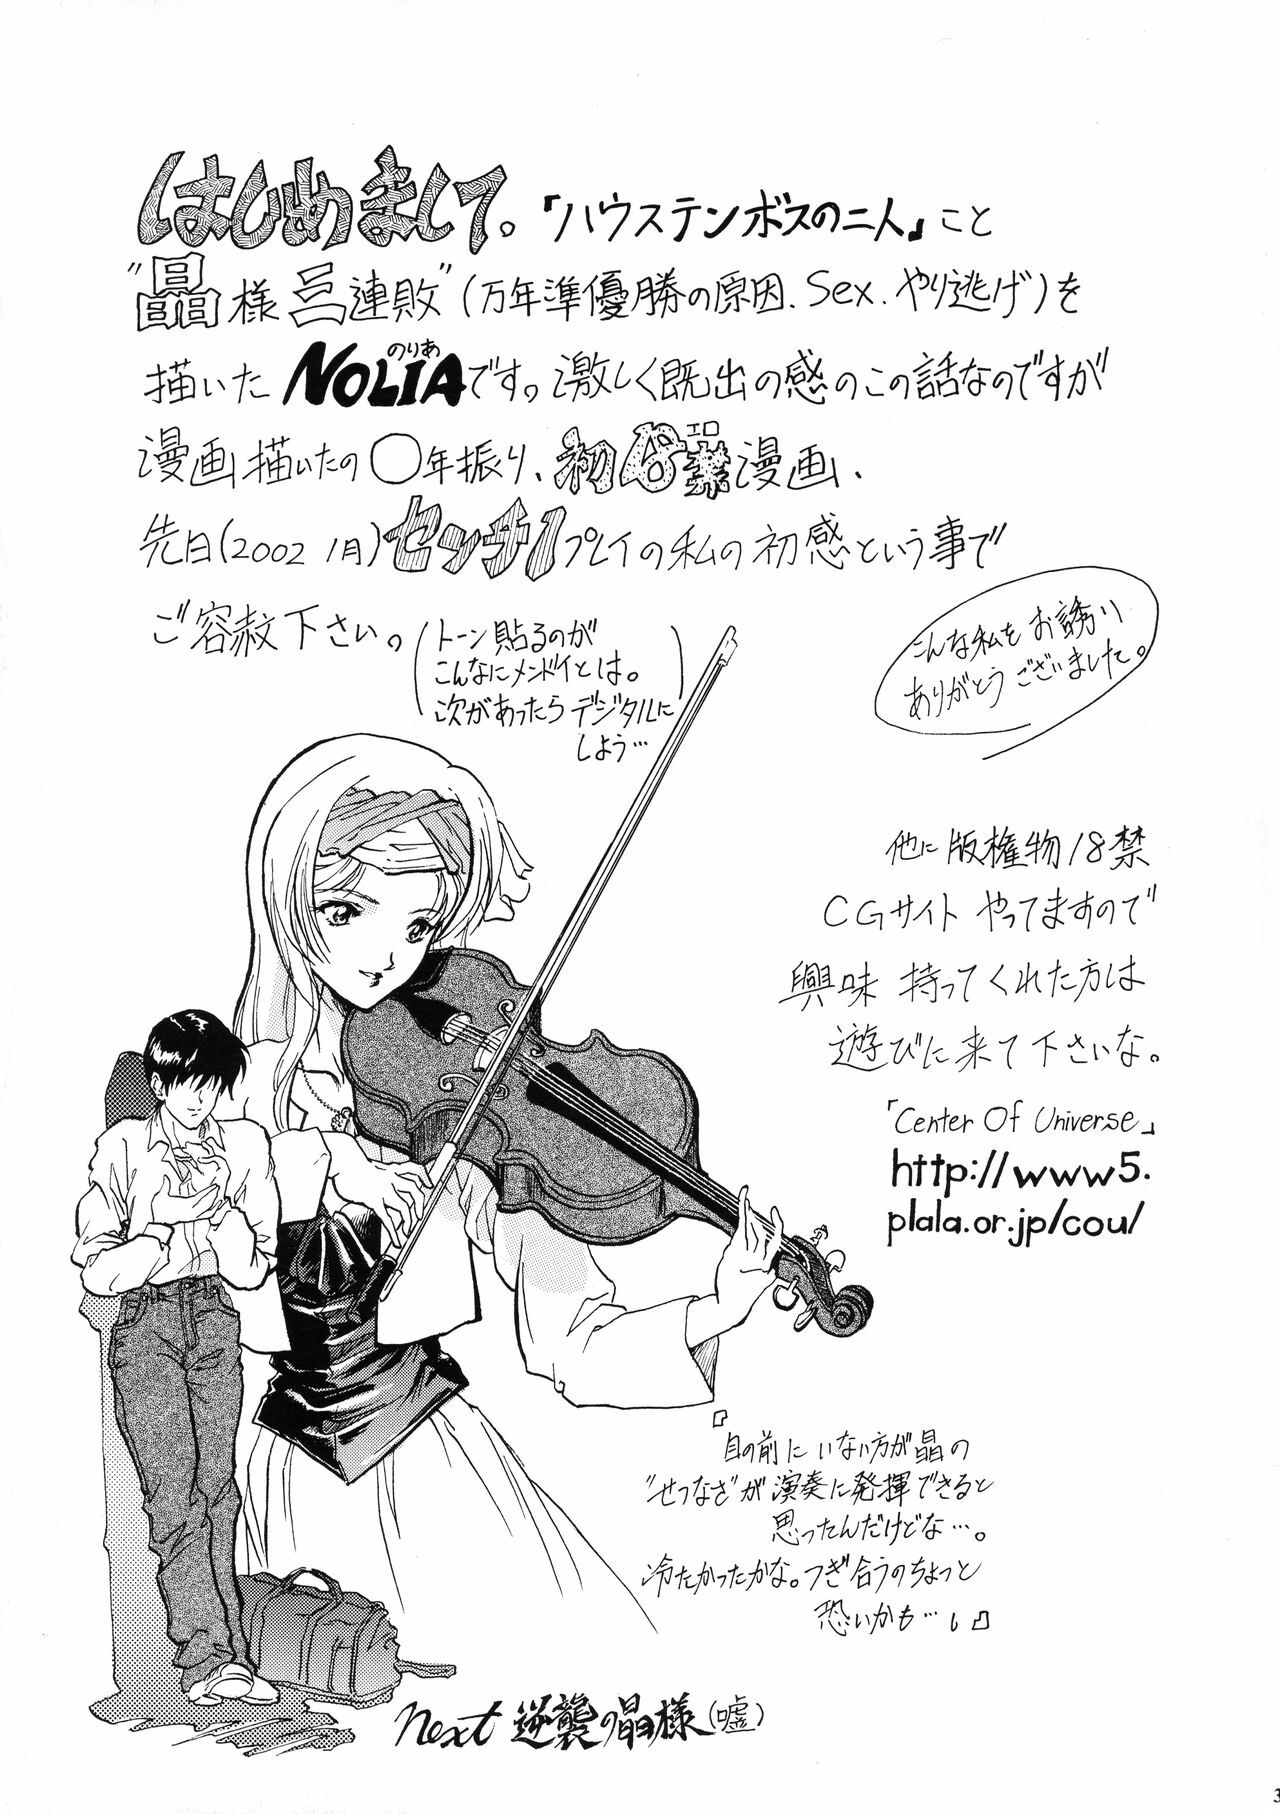 はじめまして。「ハウステンボスの二人」こと
"晶様三連敗"(万年準優勝の原因.Sex.やり逃げ)を
のりあ
描いたNOLIAです。激しく既出の感のこの話なのですが
エロ
漫画描いたの○年振り、初18禁漫画、
先日(2002 1月)センチ1プレイの私の初感という事で
ご容赦下さい。
(トーン貼るのが
こんなにメンドイとは。
次があったらデジタルに
しよう…)
こんな私をお誘い
ありがとうございました。
他に版権物18禁
CGサイトやってますので
興味持ってくれた方は
遊びに来て下さいな。
「Center Of Universe」
http://www5.
plala.or.jp/cou/
『目の前にいない方が晶の
"せつなさ"が演奏に発揮できると
思ったんだけどな…。
冷たかったかな。つぎ合うのちょっと
恐いかも…。』
next 逆襲の晶様(嘘)
3